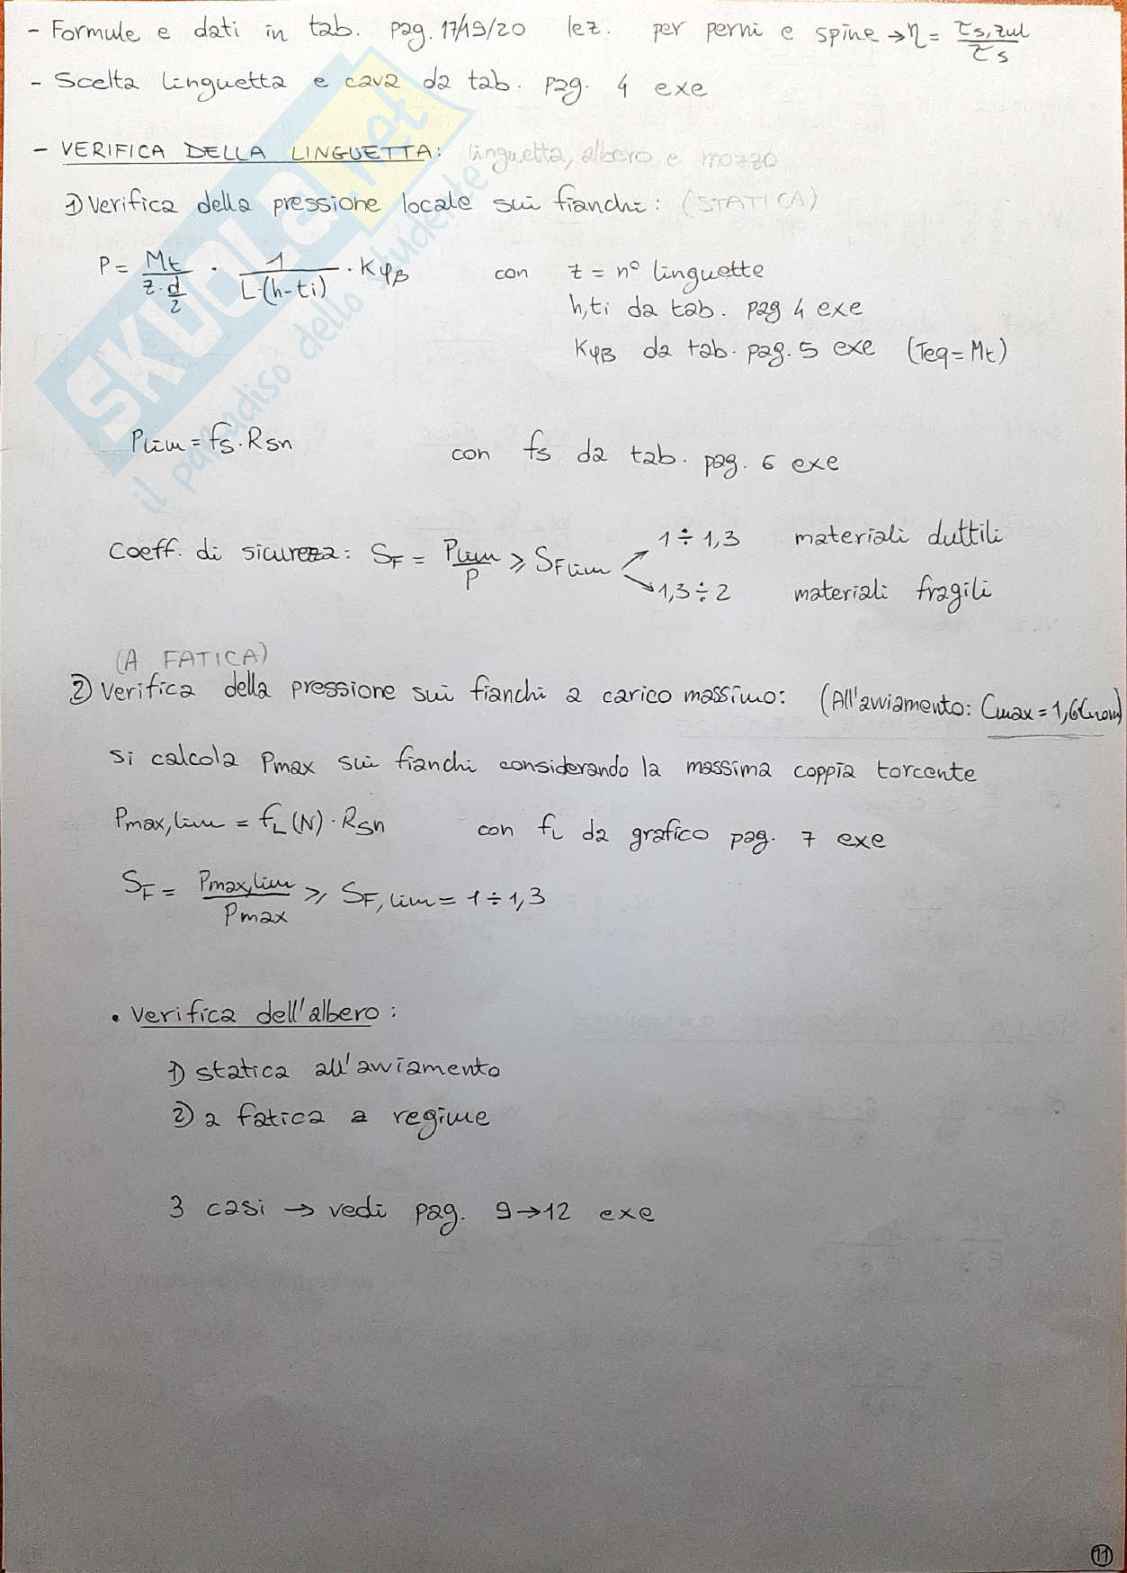 - Formule e dati in tab. pag. 17/19/20 lez. per perni e spine → η = τs,zul / τs
- Scelta linguetta e cava da tab. pag. 4 exe
- VERIFICA DELLA LINGUETTA: linguetta, albero e mozzo
1) Verifica della pressione locale sui fianchi: (STATICA)
P = Mt / (z · d/2) · 1 / (L·(h-ti)) · Kφβ con z = n° linguette
h,ti da tab. pag 4 exe
Kφβ da tab. pag. 5 exe (Teq = Mt)
Plim = fs · Rsn con fs da tab. pag. 6 exe
Coeff. di sicurezza: SF = Plim / P ⩾ SFlim
1 ÷ 1,3 materiali duttili
1,3 ÷ 2 materiali fragili
(A FATICA)
2) Verifica della pressione sui fianchi a carico massimo: (All'avviamento: Cmax = 1,6Cnom)
si calcola Pmax sui fianchi considerando la massima coppia torcente
Pmax,lim = fL(N) · Rsn con fL da grafico pag. 7 exe
SF = Pmax,lim / Pmax ⩾ SF,lim = 1 ÷ 1,3
• Verifica dell'albero:
1) statica all'avviamento
2) a fatica a regime
3 casi → vedi pag. 9→12 exe
11
SKUOLA.net
il paradiso dello studente